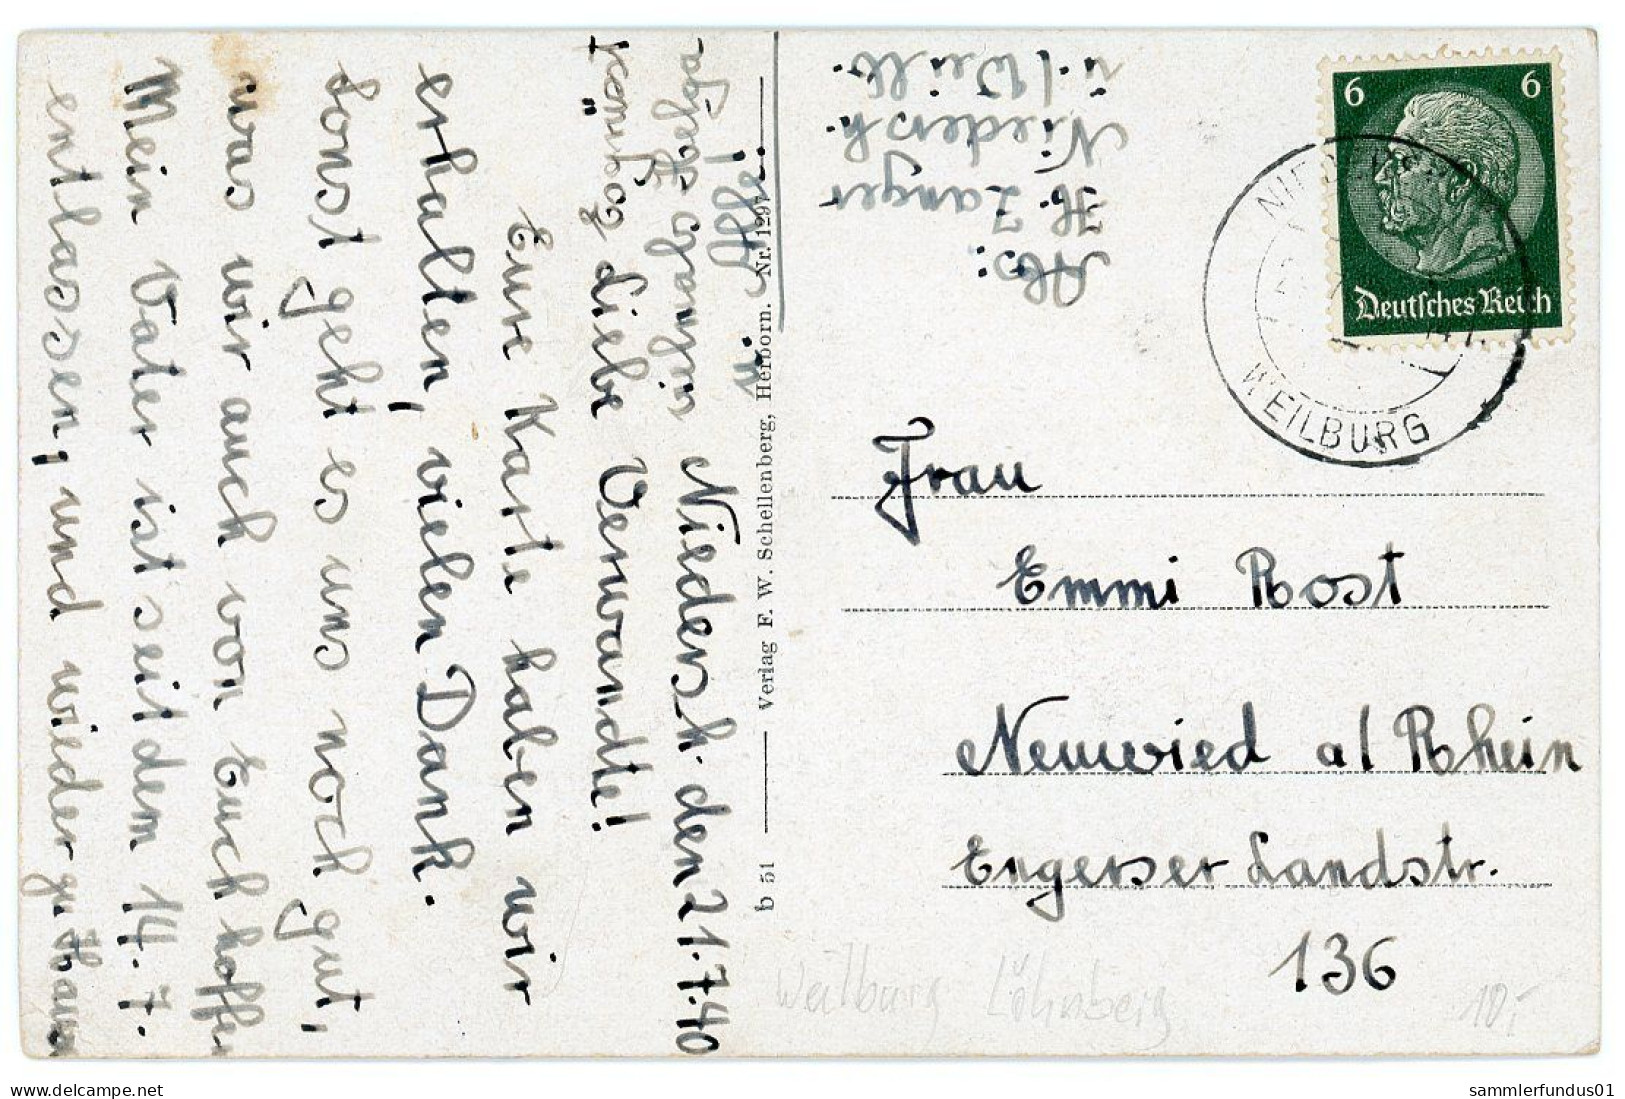 Niedersh. den 21.7.40
Liebe Verwandte!
Eure Karte haben wir
erhalten, vielen Dank.
Sonst geht es uns noch gut,
was wir auch von Euch hoffen
Mein Vater ist seit dem 14.7.
entlassen, und wieder zu Haus
u.
Abs:
H. Zanger
Niedersh.
ü./Weilb.
6 6
Deutsches Reich
WEILBURG
Frau
Emmi Rost
Neuwied a/Rhein
Engerser Landstr.
136
b 51 Verlag F. W. Schellenberg, Herborn. Nr. 1297
Weilburg Löhnberg
10,-
delcampe.net
sammlerfundus01